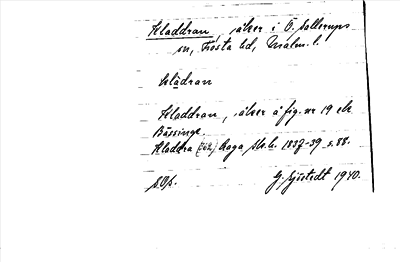 Kladdran, åker i Ö. Sallerups
sn, Frosta hd, Malm. l.
klädran
Kladdran, åker å fig. nr 19 ek
Bässinge.
Kladdra Laga sk. h. 1837-39 s. 88.
G. Sjöstedt 1940.